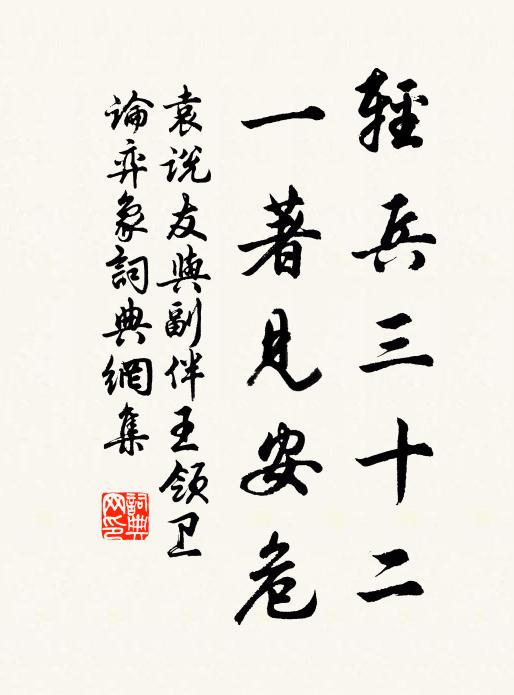 輕兵三十二
一著見安危
袁說友與副伴王領卫
論弈象詞典網集
詞典
网印